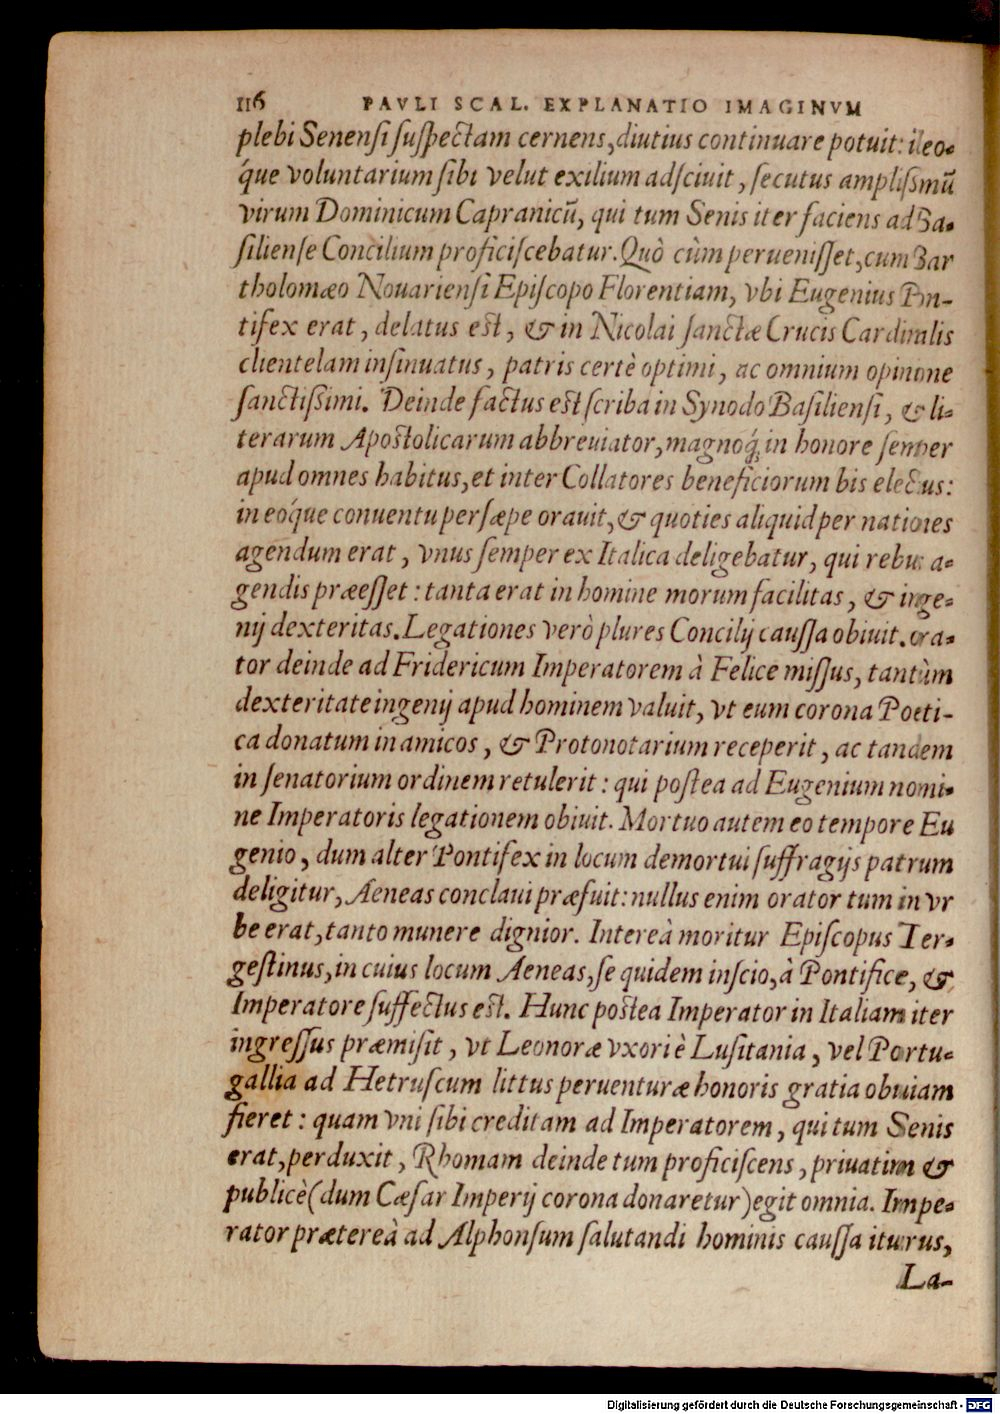 116 PAVLI SCAL. EXPLANATIO IMAGINVM
plebi Senensi suspectam cernens, diutius continuare potuit: ideo-
q́ue voluntarium sibi velut exilium adsciuit, secutus amplissmũ
virum Dominicum Capranicũ, qui tum Senis iter faciens ad Ba-
siliense Concilium proficiscebatur. Quò cùm peruenisset, cum Bar
tholomæo Nouariensi Episcopo Florentiam, vbi Eugenius Pon-
tifex erat, delatus est, & in Nicolai sanctæ Crucis Cardinalis
clientelam insinuatus, patris certè optimi, ac omnium opinione
sanctissimi. Deinde factus est scriba in Synodo Basiliensi, & li-
terarum Apostolicarum abbreuiator, magnoq́; in honore semper
apud omnes habitus, et inter Collatores beneficiorum bis electus:
in eoq́ue conuentu persæpe orauit, & quoties aliquid per nationes
agendum erat, vnus semper ex Italica deligebatur, qui rebus a-
gendis præesset: tanta erat in homine morum facilitas, & inge-
nij dexteritas. Legationes verò plures Concilij caussa obiuit. ora-
tor deinde ad Fridericum Imperatorem à Felice missus, tantùm
dexteritate ingenij apud hominem valuit, vt eum corona Poeti-
ca donatum in amicos, & Protonotarium receperit, ac tandem
in senatorium ordinem retulerit: qui postea ad Eugenium nomi-
ne Imperatoris legationem obiuit. Mortuo autem eo tempore Eu
genio, dum alter Pontifex in locum demortui suffragijs patrum
deligitur, Aeneas conclaui præfuit: nullus enim orator tum in vr
be erat, tanto munere dignior. Intereà moritur Episcopus Ter-
gestinus, in cuius locum Aeneas, se quidem inscio, à Pontifice, &
Imperatore suffectus est. Hunc postea Imperator in Italiam iter
ingressus præmisit, vt Leonoræ vxori è Lusitania, vel Portu-
gallia ad Hetruscum littus peruenturæ honoris gratia obuiam
fieret: quam vni sibi creditam ad Imperatorem, qui tum Senis
erat, perduxit, Rhomam deinde tum proficiscens, priuatim &
publicè (dum Cæsar Imperij corona donaretur) egit omnia. Impe-
rator prætereà ad Alphonsum salutandi hominis caussa iturus,
La-
Digitalisierung gefördert durch die Deutsche Forschungsgemeinschaft - DFG